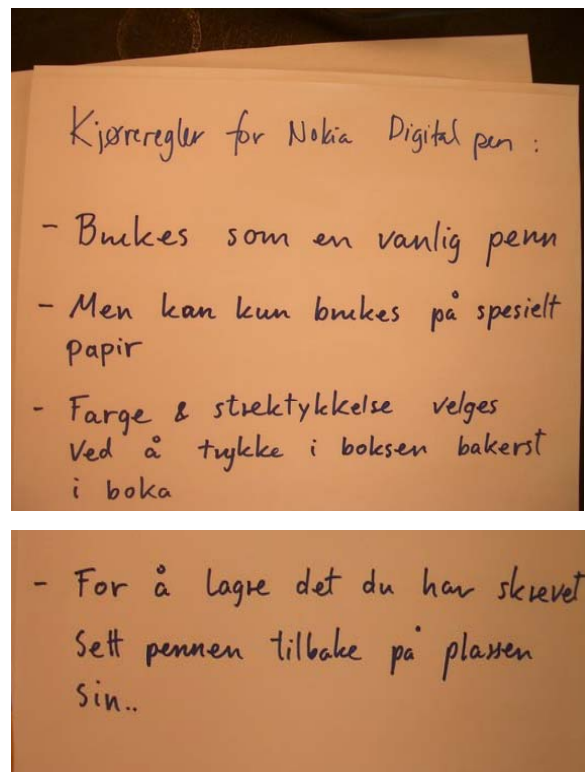 Kjøreregler for Nokia Digital pen :
- Brukes som en vanlig penn
- Men kan kun brukes på spesielt
papir
- Farge & strektykkelse velges
Ved å trykke i boksen bakerst
i boka
- For å lagre det du har skrevet
Sett pennen tilbake på plassen
sin..